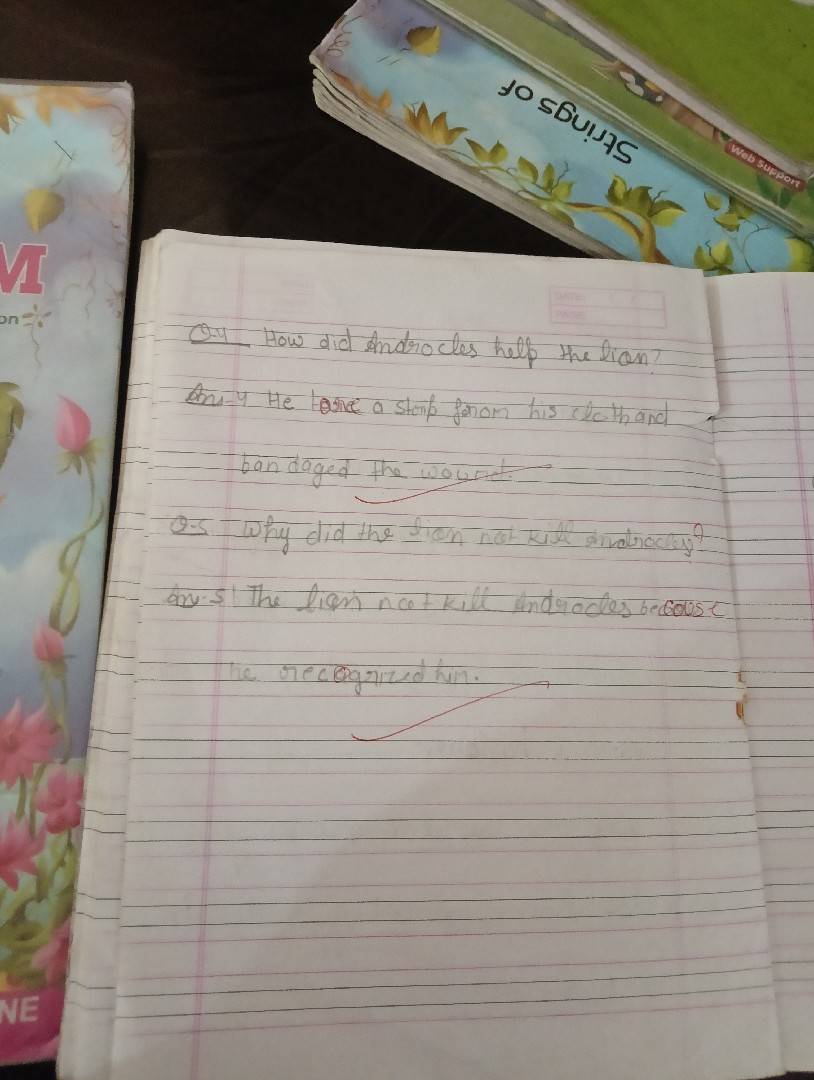 Strings of
Web Support
M
on
DATE:
PAGE:
Q-4 How did Androcles help the lion?
Ans-4 He tore a strip from his cloth and
bandaged the wound.
Q-5 Why did the lion not kill Androcles?
Ans-5 The lion not kill Androcles because
he recognized him.
NE